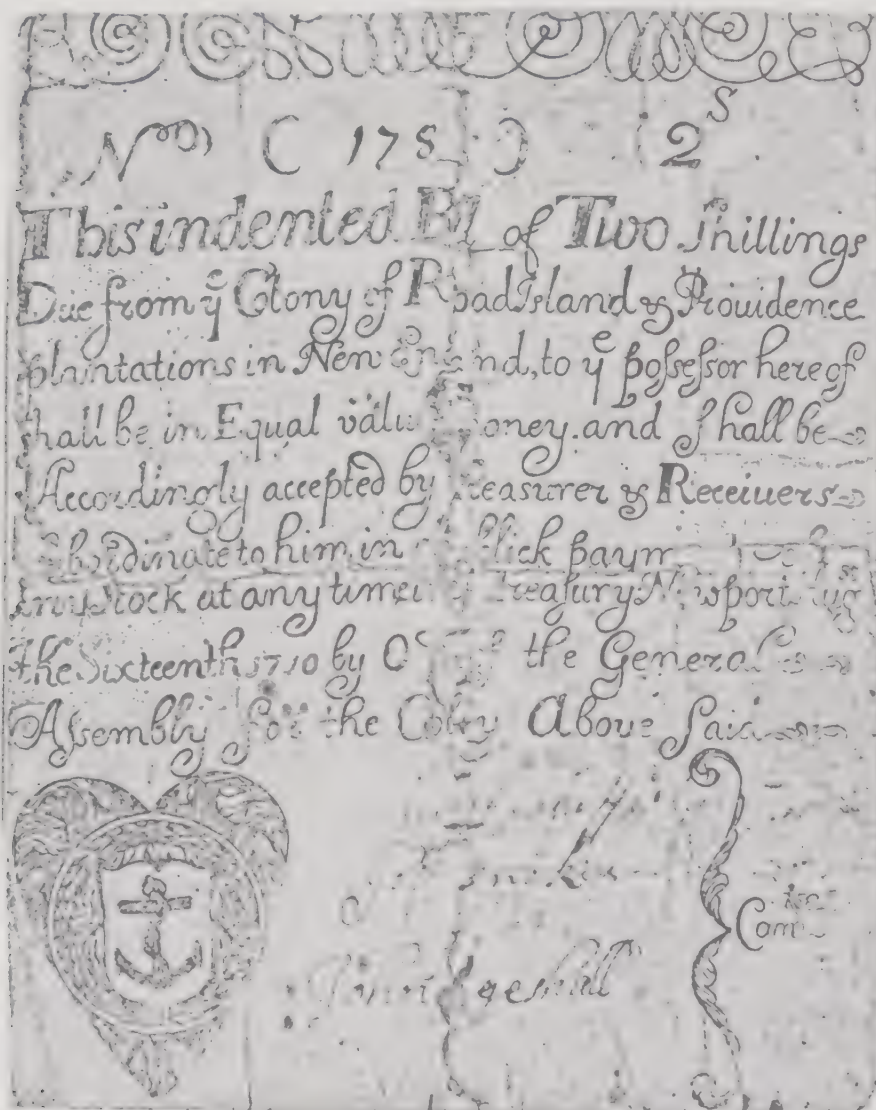 No ( 178 ) 2s
This indented Bill of Two shillings
Due from ye Colony of Road Island & Prouidence
plantations in New England, to ye possessor hereof
shall be in Equal value money. and shall be
Accordingly accepted by Treasurer & Receiuers
Subordinate to him in publick paym
any stock at any time Treasury Newport
the Sixteenth 1710 by Order of the General
Assembly for the Colony Above said
Com tee